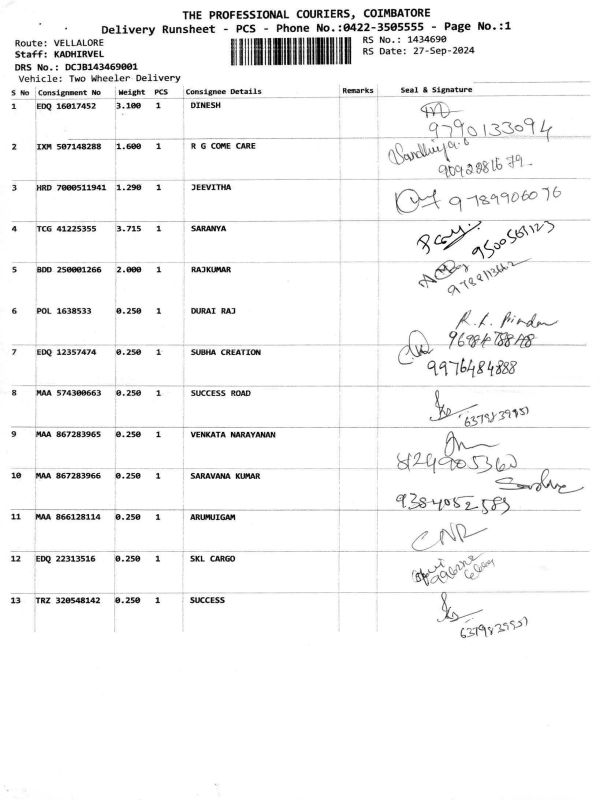 THE PROFESSIONAL COURIERS, COIMBATORE
Delivery Runsheet - PCS - Phone No.:0422-3505555 - Page No.:1
Route: VELLALORE
RS No.: 1434690
Staff: KADHIRVEL
RS Date: 27-Sep-2024
DRS No.: DCJB143469001
Vehicle: Two Wheeler Delivery
S No Consignment No Weight PCS Consignee Details Remarks Seal & Signature
1 EDQ 16017452 3.100 1 DINESH
9790133094
2 IXM 507148288 1.600 1 R G COME CARE Sandhiya
9092281679
3 HRD 7000511941 1.290 1 JEEVITHA 9789906076
4 TCG 41225355 3.715 1 SARANYA
9500561123
5 BDD 250001266 2.000 1 RAJKUMAR
6 POL 1638533 0.250 1 DURAI RAJ
7 EDQ 12357474 0.250 1 SUBHA CREATION
9976484888
8 MAA 574300663 0.250 1 SUCCESS ROAD
6379839951
9 MAA 867283965 0.250 1 VENKATA NARAYANAN
8124905360
10 MAA 867283966 0.250 1 SARAVANA KUMAR
9384052583
11 MAA 866128114 0.250 1 ARUMUIGAM CNR
12 EDQ 22313516 0.250 1 SKL CARGO
13 TRZ 320548142 0.250 1 SUCCESS
6379839951